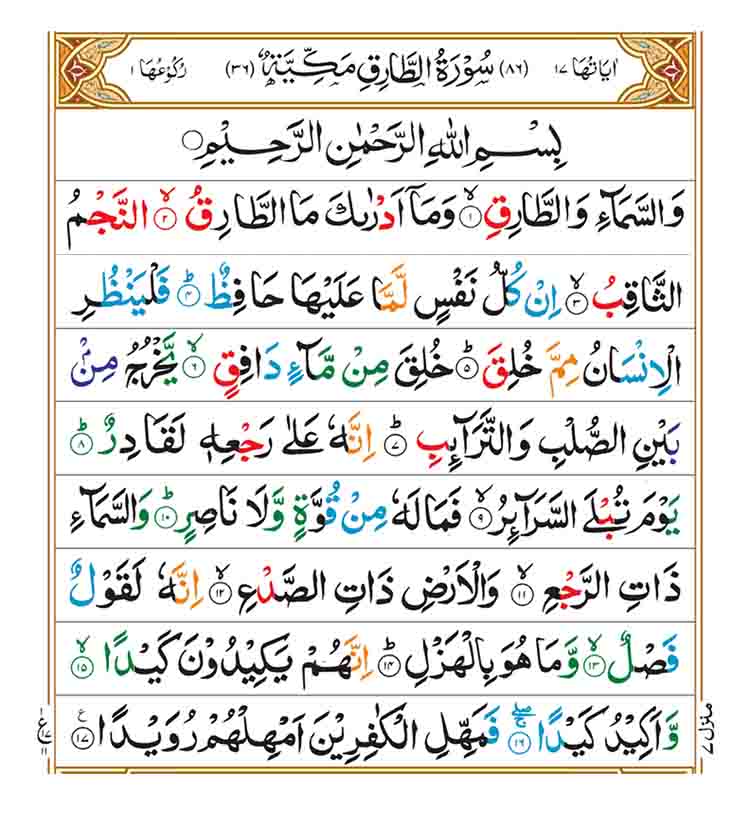 اٰيَاتُهَا ١٧ (٨٦) سُوْرَةُ الطَّارِقِ مَكِّيَّةٌ (٣٦) رُكُوْعُهَا ١
بِسْمِ اللّٰهِ الرَّحْمٰنِ الرَّحِيْمِ
وَالسَّمَآءِ وَالطَّارِقِ ۙ‏﴿١﴾ وَمَاۤ اَدْرٰىكَ مَا الطَّارِقُ ۙ‏﴿٢﴾ النَّجْمُ
الثَّاقِبُ ۙ‏﴿٣﴾ اِنْ كُلُّ نَفْسٍ لَّمَّا عَلَيْهَا حَافِظٌ ؕ‏﴿٤﴾ فَلْيَنْظُرِ
الْاِنْسَانُ مِمَّ خُلِقَ ؕ‏﴿٥﴾ خُلِقَ مِنْ مَّآءٍ دَافِقٍ ۙ‏﴿٦﴾ يَّخْرُجُ مِنْۢ
بَيْنِ الصُّلْبِ وَالتَّرَآئِبِ ؕ‏﴿٧﴾ اِنَّهٗ عَلٰى رَجْعِهٖ لَقَادِرٌ ؕ‏﴿٨﴾
يَوْمَ تُبْلَى السَّرَآئِرُ ۙ‏﴿٩﴾ فَمَا لَهٗ مِنْ قُوَّةٍ وَّلَا نَاصِرٍ ؕ‏﴿١٠﴾ وَالسَّمَآءِ
ذَاتِ الرَّجْعِ ۙ‏﴿١١﴾ وَالْاَرْضِ ذَاتِ الصَّدْعِ ۙ‏﴿١٢﴾ اِنَّهٗ لَقَوْلٌ
فَصْلٌ ۙ‏﴿١٣﴾ وَّمَا هُوَ بِالْهَزْلِ ؕ‏﴿١٤﴾ اِنَّهُمْ يَكِيْدُوْنَ كَيْدًا ۙ‏﴿١٥﴾
وَّاَكِيْدُ كَيْدًا ۖۚ‏﴿١٦﴾ فَمَهِّلِ الْكٰفِرِيْنَ اَمْهِلْهُمْ رُوَيْدًا ﴿١٧﴾
منزل ٧